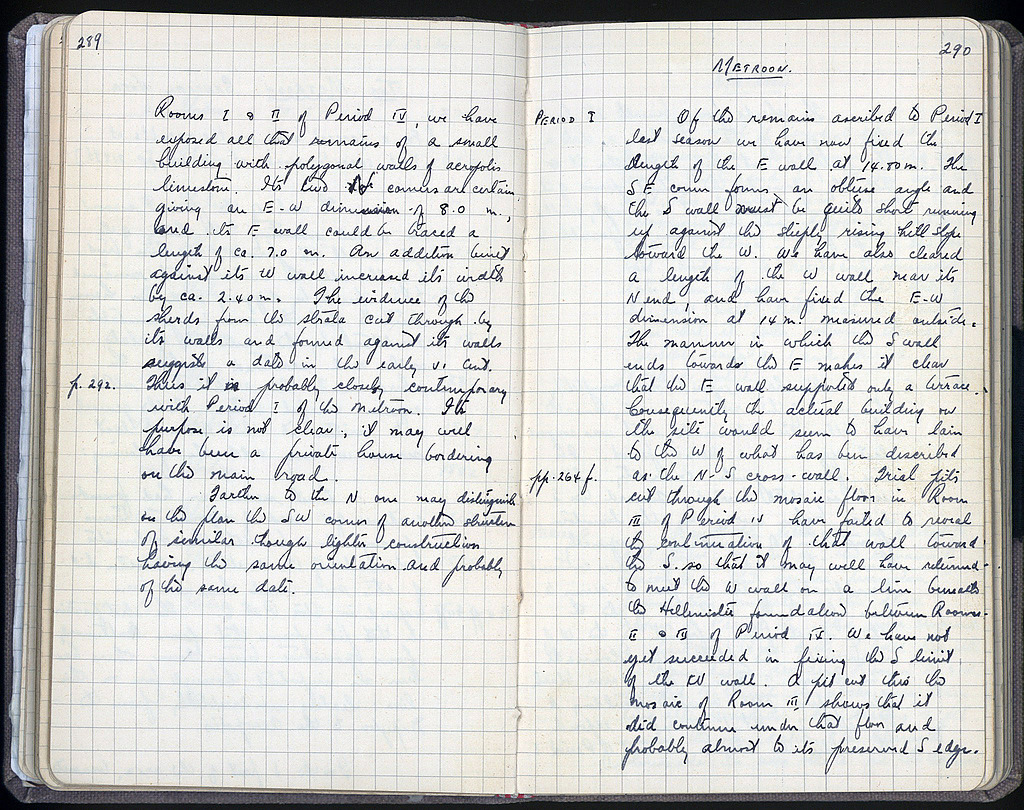 289
Rooms I & II of Period IV, we have
exposed all that remains of a small
building with polygonal walls of acropolis
limestone. Its two corners are certain,
giving an E-W dimension of 8.0 m.,
and its E wall could be traced a
length of ca. 7.0 m. An addition built
against its W wall increased its width
by ca. 2.40 m. The evidence of the
sherds from the strata cut through by
its walls and formed against its walls
suggests a date in the early VI cent.
p. 292.
Thus it is probably closely contemporary
with Period I of the Metroon. Its
purpose is not clear; it may well
have been a private house bordering
on the main road.
Farther to the N one may distinguish
on the plan the SW corner of another structure
of similar though lighter construction
having the same orientation and probably
of the same date.
290
METROON.
PERIOD I
Of the remains ascribed to Period I
last season we have now fixed the
length of the E wall at 14.80 m. The
SE corner forms an obtuse angle and
the S wall must be quite short running
up against the steeply rising hill slope
toward the W. We have also cleared
a length of the W wall near its
N end, and have fixed the E-W
dimension at 14 m. measured outside.
The manner in which the S wall
ends towards the E makes it clear
that the E wall supported only a terrace.
Consequently the actual building on
the site would seem to have lain
to the W of what has been described
pp. 264 f.
as the N-S cross-wall. Trial pits
cut through the mosaic floor in Room
III of Period IV have failed to reveal
the continuation of that wall toward
the S. so that it may well have returned
to meet the W wall on a line beneath
the Hellenistic foundation between Rooms
II & III of Period IV. We have not
yet succeeded in fixing the S limit
of the W wall. A pit cut thro the
mosaic of Room III shows that it
did continue under that floor and
probably almost to its preserved S edge.